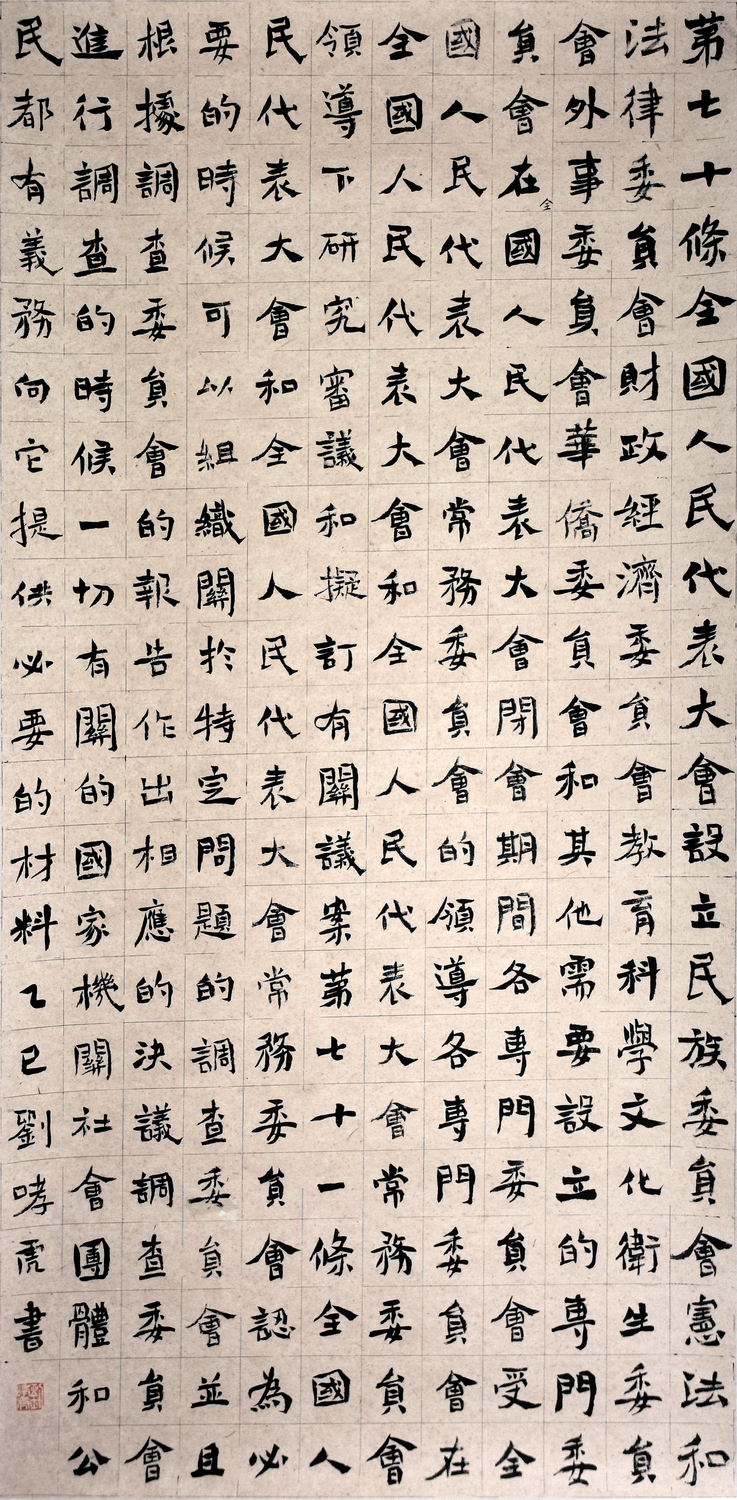 第七十條全國人民代表大會設立民族委員會憲法和
法律委員會財政經濟委員會教育科學文化衛生委員
會外事委員會華僑委員會和其他需要設立的專門委
員會在全國人民代表大會閉會期間各專門委員會受全
國人民代表大會常務委員會的領導各專門委員會在
全國人民代表大會和全國人民代表大會常務委員會
領導下研究審議和擬訂有關議案第七十一條全國人
民代表大會和全國人民代表大會常務委員會認為必
要的時候可以組織關於特定問題的調查委員會並且
根據調查委員會的報告作出相應的決議調查委員會
進行調查的時候一切有關的國家機關社會團體和公
民都有義務向它提供必要的材料乙巳劉哮虎書